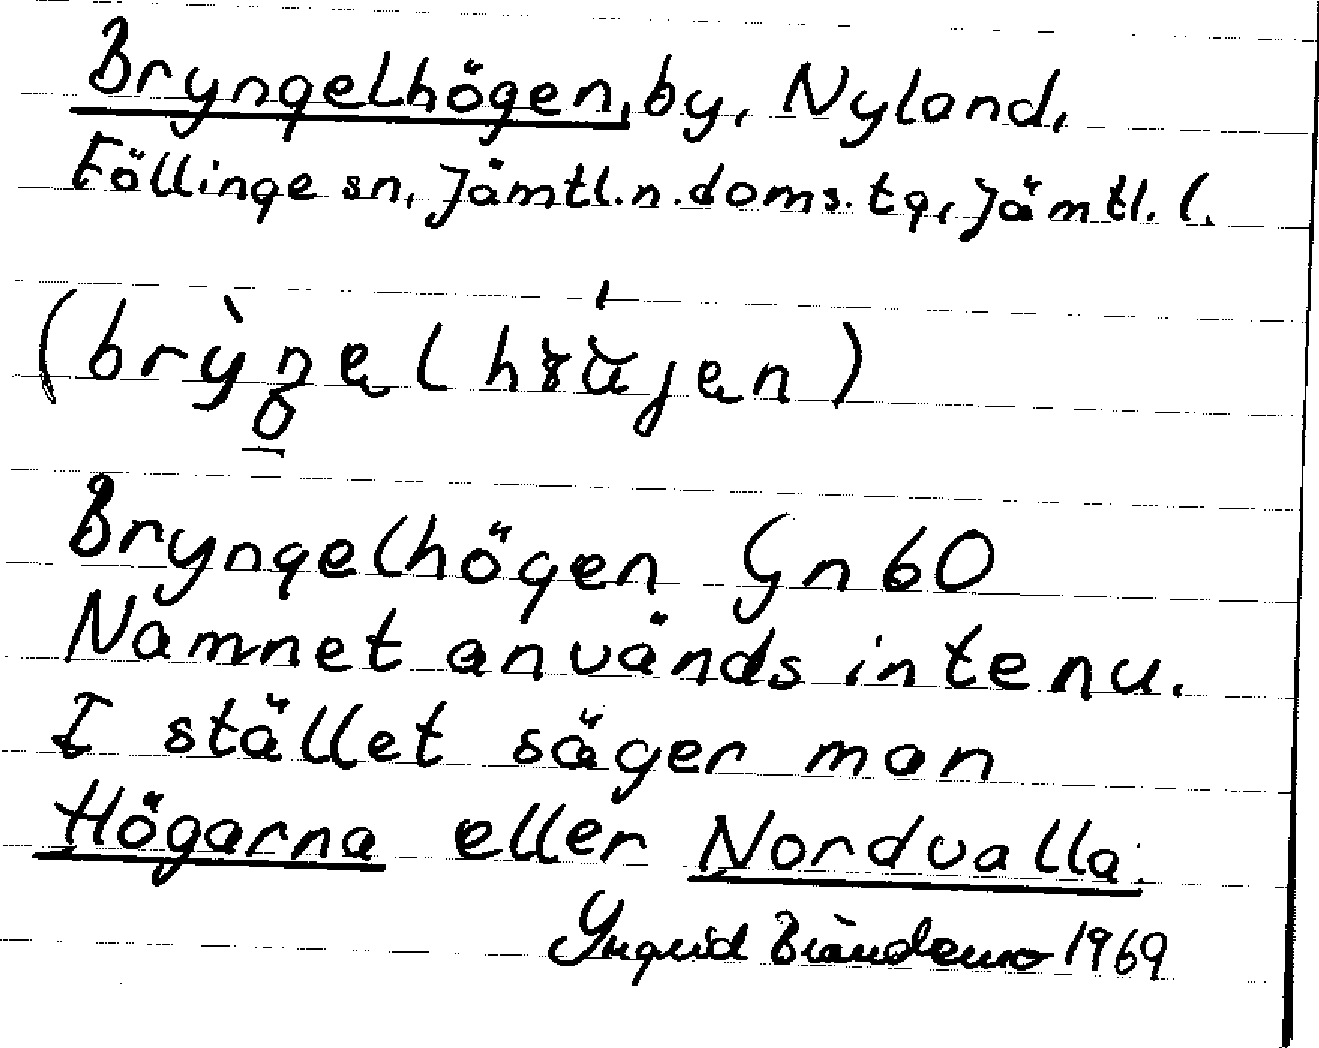 Bryngelhögen, by, Nyland,
Föllinge sn, Jämtl. n. doms. tg, Jämtl. l.
Bryngelhögen Gn 60
Namnet används inte nu.
I stället säger man
Högarna eller Nordvalla.
Ingrid 1969